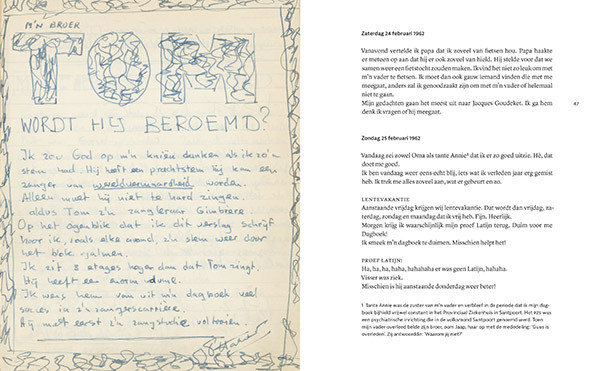 M'N BRUER
TOM
WORDT HIJ BEROEMD?
Ik zou God op m'n knieën danken als ik zo'n
stem had. Hij heeft een prachtstem hij kan een
zanger van wereldvermaardheid worden.
Alleen moet hij niet te hard zingen.
aldus Tom z'n zangleraar Gimbrere.
Op het ogenblik dat ik dit verslag schrijf
hoor ik, zoals elke avond, z'n stem weer door
het blok galmen.
Ik zit 3 etages hoger dan dat Tom zingt.
Hij heeft een enorm volume.
Ik wens hem van uit m'n dagboek veel
succes in z'n zangcarrière.
Hij moet eerst z'n zangstudie voltooien.
Zaterdag 24 februari 1962
Vanavond vertelde ik papa dat ik zoveel van fietsen hou. Papa haakte
er meteen op aan dat hij er ook zoveel van hield. Hij stelde voor dat we
samen weer een fietstocht zouden maken. Ik vind het niet zo leuk om met
m'n vader te fietsen. Ik moet dan ook gauw iemand vinden die met me
meegaat, anders zal ik genoodzaakt zijn om met m'n vader of helemaal
niet te gaan.
Mijn gedachten gaan het meest uit naar Jacques Goudeket. Ik ga hem
denk ik vragen of hij meegaat.
47
Zondag 25 februari 1962
Vandaag zei zowel Oma als tante Annie¹ dat ik er zo goed uitzie. Hè, dat
doet me goed.
Ik ben vandaag weer eens echt blij, iets wat ik verleden jaar erg gemist
heb. Ik trek me alles zoveel aan, wat er gebeurt en zo.
LENTEVAKANTIE
Aanstaande vrijdag krijgen wij lentevakantie. Dat wordt dan vrijdag, za-
terdag, zondag en maandag dat ik vrij heb. Fijn. Heerlijk.
Morgen krijg ik waarschijnlijk mijn proef Latijn terug. Duim voor me
Dagboek!
Ik smeek m'n dagboek te duimen. Misschien helpt het!
PROEF LATIJN!
Ha, ha, ha, haha, hahahaha er was geen Latijn, hahaha.
Visser was ziek.
Misschien is hij aanstaande donderdag weer beter!
1. Tante Annie was de zuster van m'n vader en verbleef in de periode dat ik mijn dag-
boek bijhield vrijwel constant in het Provinciaal Ziekenhuis in Santpoort. Het PZS was
een psychiatrische inrichting die in de volksmond Santpoort genoemd werd. Toen
mijn vader overleed belde zijn broer, oom Jaap, haar op met de mededeling: 'Guus is
overleden'. Zij antwoordde: 'Waarom jij niet?'